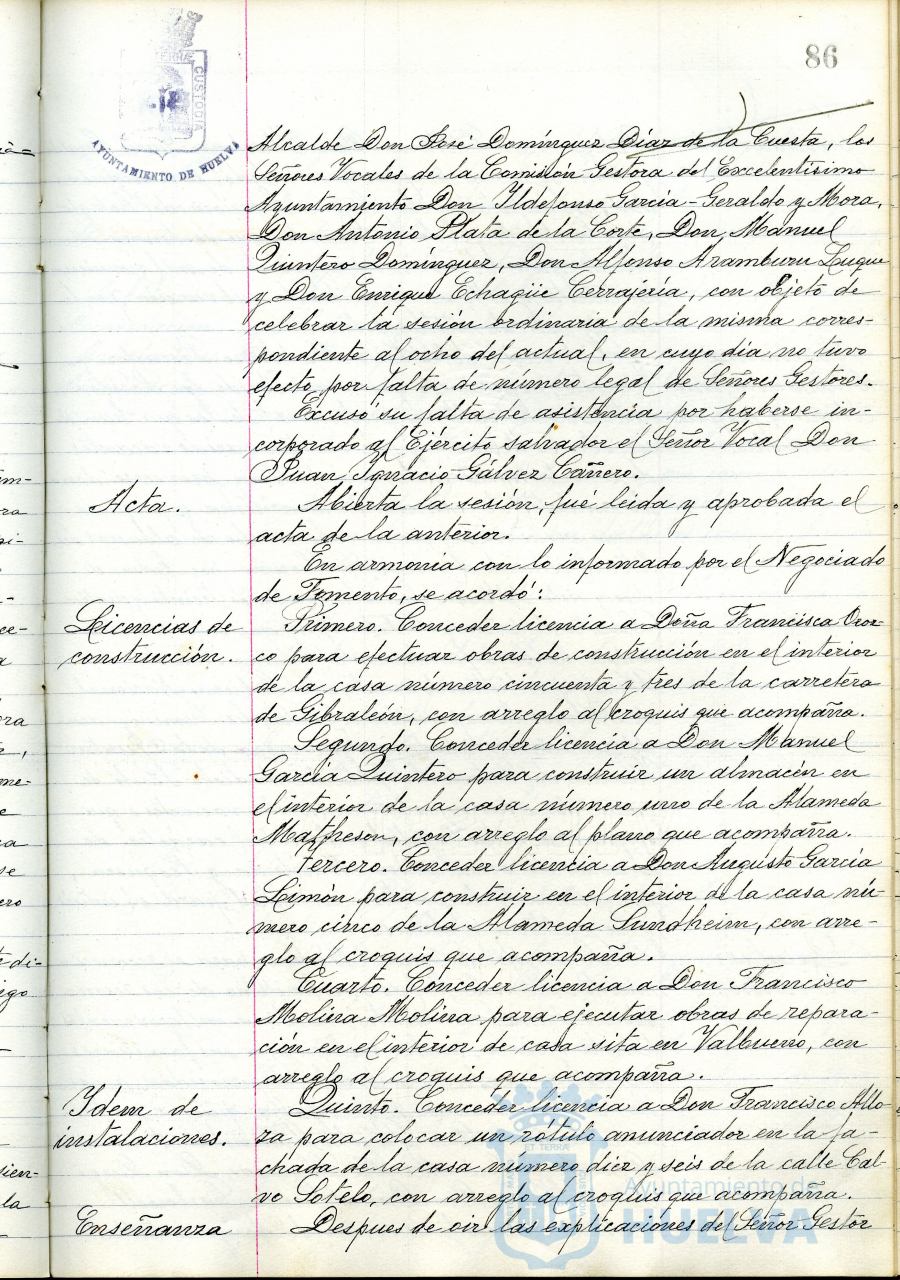 86
CUSTODIA
AYUNTAMIENTO DE HUELVA
Alcalde Don José Domínguez Díaz de la Cuesta, los
Señores Vocales de la Comisión Gestora del Excelentísimo
Ayuntamiento Don Ildefonso García-Geraldo y Mora,
Don Antonio Plata de la Corte, Don Manuel
Quintero Domínguez, Don Alfonso Aramburu Luque
y Don Enrique Echagüe Cerrajería, con objeto de
celebrar la sesión ordinaria de la misma corres-
pondiente al ocho del actual, en cuyo día no tuvo
efecto por falta de número legal de Señores Gestores.
Excusó su falta de asistencia por haberse in-
corporado al Ejército salvador el Señor Vocal Don
Juan Ignacio Gálvez Cañero.
Acta.
Abierta la sesión, fué leida y aprobada el
acta de la anterior.
En armonia con lo informado por el Negociado
de Fomento, se acordó:
Licencias de
construcción.
Primero. Conceder licencia a Doña Francisca Oroz-
co para efectuar obras de construcción en el interior
de la casa número cincuenta y tres de la carretera
de Gibraleón, con arreglo al croquis que acompaña.
Segundo. Conceder licencia a Don Manuel
García Quintero para construir un almacén en
el interior de la casa número uno de la Alameda
Matheson, con arreglo al plano que acompaña.
Tercero. Conceder licencia a Don Augusto García
Limón para construir en el interior de la casa nú-
mero cinco de la Alameda Sundheim, con arre-
glo al croquis que acompaña.
Cuarto. Conceder licencia a Don Francisco
Molina Molina para ejecutar obras de repara-
ción en el interior de casa sita en Valbueno, con
arreglo al croquis que acompaña.
Idem de
instalaciones.
Quinto. Conceder licencia a Don Francisco Allo-
za para colocar un rótulo anunciador en la fa-
chada de la casa número diez y seis de la calle Cal-
vo Sotelo, con arreglo al croquis que acompaña.
Enseñanza
Despues de oir las explicaciones del Señor Gestor
Ayuntamiento de
HUELVA